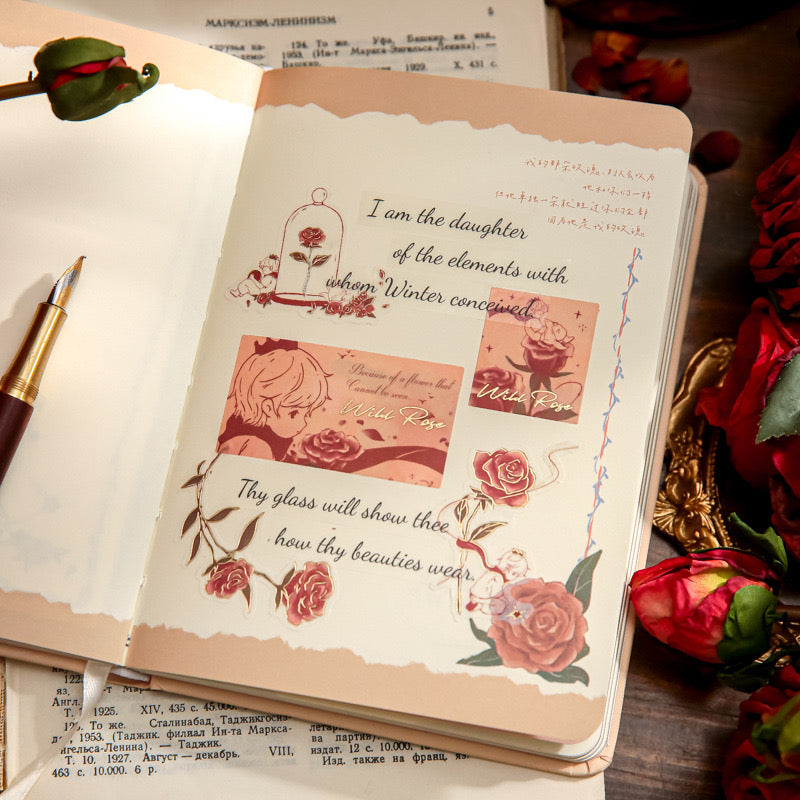 МАРКСИЗМ-ЛЕНИНИЗМ 5
134. То же. Уфа, Башкир. кн. изд.
1953 (Ин-т Маркса-Энгельса-Ленина). —
Башкир.
1929. X, 431 с.
我的那朵玫瑰,别人会以为
她和你们一样
但她单独一朵就胜过你们全部
因为她是我的玫瑰。
I am the daughter
of the elements with
whom Winter conceived
Because of a flower that
Cannot be seen
Wild Rose
Wild Rose
Thy glass will show thee
how thy beauties wear.
122.
яз.
Англ.
1925. XIV, 435 с. 45.000.
То же. Сталинабад, Таджикгосиз-
1953. (Таджик. филиал Ин-та Маркса-
Энгельса-Ленина). — Таджик.
Т. 10. 1927. Август — декабрь. VIII,
463 с. 10.000. 6 р.
и партии).
издат. 12 с. 10.000.
Изд. также на франц. яз.